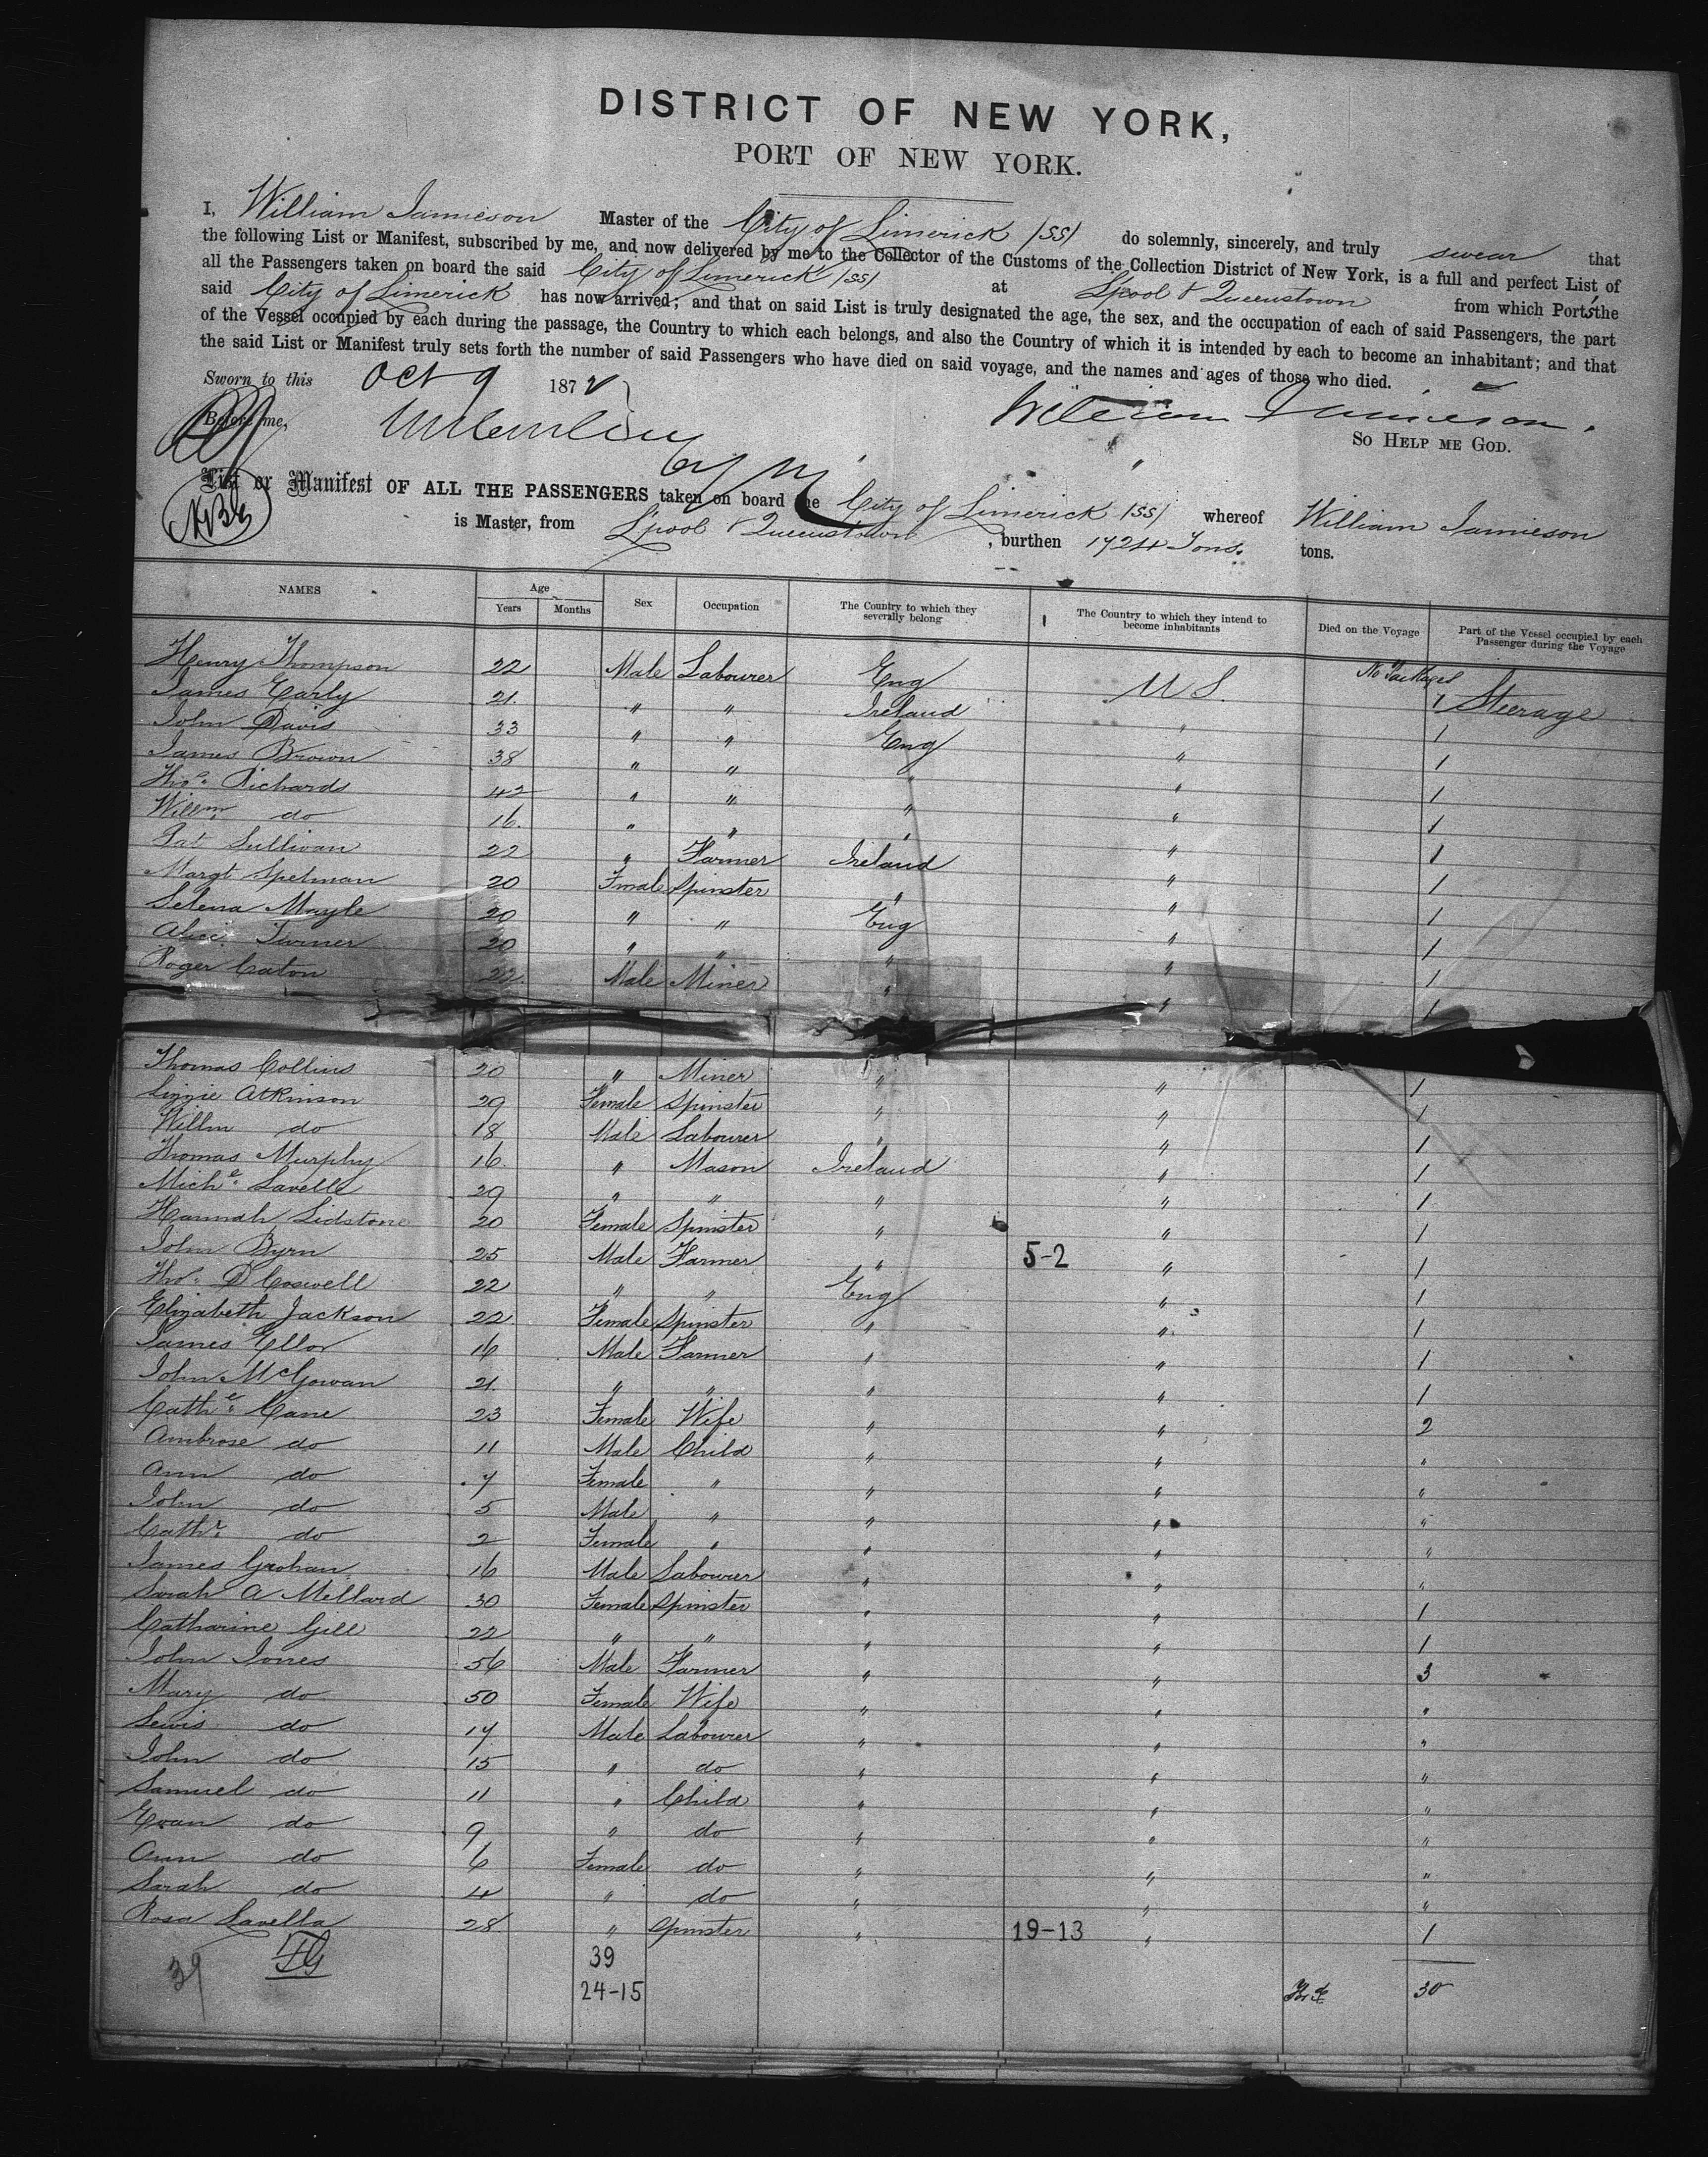 DISTRICT OF NEW YORK,
PORT OF NEW YORK.
I, William Jamieson Master of the City of Limerick /SS/ do solemnly, sincerely, and truly swear that
the following List or Manifest, subscribed by me, and now delivered by me to the Collector of the Customs of the Collection District of New York, is a full and perfect List of
all the Passengers taken on board the said City of Limerick /SS/ at L'pool & Queenstown from which Ports the
said City of Limerick has now arrived; and that on said List is truly designated the age, the sex, and the occupation of each of said Passengers, the part
of the Vessel occupied by each during the passage, the Country to which each belongs, and also the Country of which it is intended by each to become an inhabitant; and that
the said List or Manifest truly sets forth the number of said Passengers who have died on said voyage, and the names and ages of those who died.
Sworn to this Oct 9 1872
William Jamieson.
Before me,
SO HELP ME GOD.
List or Manifest OF ALL THE PASSENGERS taken on board the City of Limerick /SS/ whereof William Jamieson
is Master, from L'pool & Queenstown, burthen 1724 Tons. tons.
NAMES Age Years Months Sex Occupation The Country to which they severally belong The Country to which they intend to become inhabitants Died on the Voyage Part of the Vessel occupied by each Passenger during the Voyage
No Packages
Henry Thompson 22 Male Labourer Eng U S 1 Steerage
James Early 21 " " Ireland " 1
John Davis 33 " " Eng " 1
James Brown 38 " " " " 1
Thos. Richards 42 " " " " 1
Willm. do 16 " " " " 1
Pat Sullivan 22 " Farmer Ireland " 1
Margt Spelman 20 Fmale Spinster " " 1
Selena Mayle 20 " " Eng " 1
Alice Turner 20 " " " " 1
Roger Caton 22 Male Miner " " 1
Thomas Collins 20 " Miner " " 1
Lizzie Atkinson 29 Female Spinster " " 1
Willm do 18 Male Labourer " " 1
Thomas Murphy 16 " Mason Ireland " 1
Michl. Lavelle 29 " " " " 1
Hannah Lidstone 20 Female Spinster " " 1
John Byrn 25 Male Farmer " 5-2 " 1
Thos. D Coswell 22 " " Eng " 1
Elizabeth Jackson 22 Female Spinster " " 1
James Ellor 16 Male Farmer " " 1
John McGowan 21 " " " " 1
Cathe. Cane 23 Female Wife " " 2
Ambrose do 11 Male Child " " "
Ann do 7 Female " " " "
John do 5 Male " " " "
Cathr. do 2 Female " " " "
James Grohan 16 Male Labourer " " "
Sarah A Mellard 30 Female Spinster " " 1
Catharine Gill 22 " " " " 1
John Jones 56 Male Farmer " " 3
Mary do 50 Female Wife " " "
Lewis do 17 Male Labourer " " "
John do 15 " do " " "
Samuel do 11 " Child " " "
Evan do 9 " do " " "
Ann do 6 Female do " " "
Sarah do 4 " do " " "
Rosa Lavella 28 " Spinster " 19-13 " 1
39 39
24-15 30